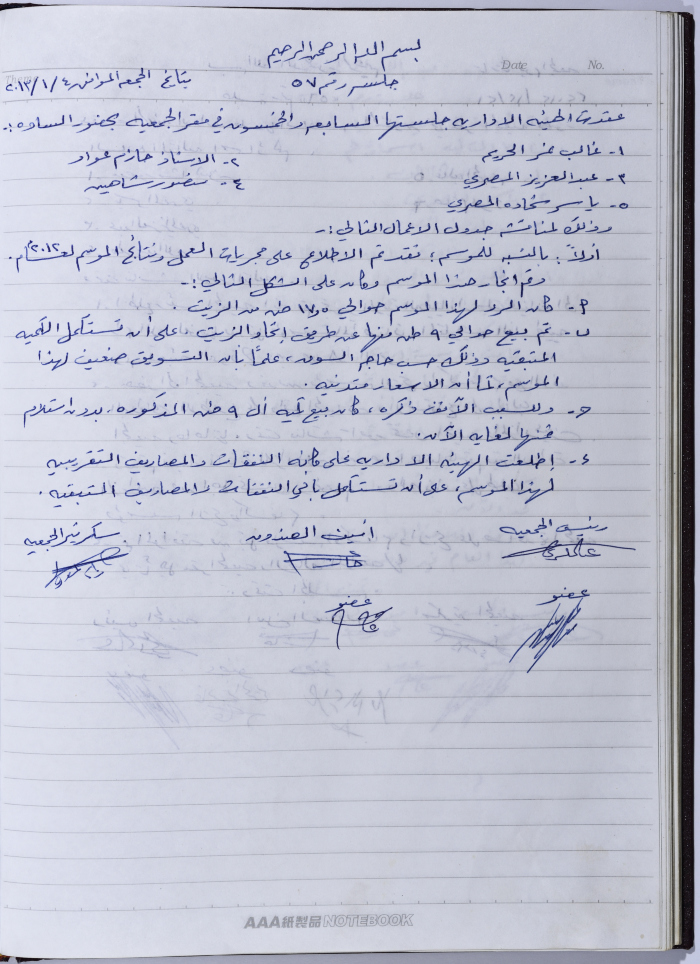 بسم الله الرحمن الرحيم
Date No.
جلسه رقم ٥٧ بتاريخ الجمعه الموافق ٢٠١٣/١/٤
عقدت الهيئه الاداريه جلستها السابعه والخمسون في مقر الجمعيه بحضور الساده :-
١- غالب عمر الحريم ٢- الاستاذ حازم عواد
٣- عبد العزيز المصري ٤- منصور شاهين
٥- ياسر شحاده المصري
وذلك لمناقشة جدول الاعمال التالي :-
أولاً : بالنسبه للموسم ؛ فقد تم الاطلاع على مجريات العمل ونتائج الموسم لعام ٢٠١٢م.
وتم انجاز هذا الموسم وكان على الشكل التالي :-
أ- كان الرد لهذا الموسم حوالي ١٧,٥ طن من الزيت .
ب- تم بيع حوالي ٩ طن منها عن طريق إتحاد الزيت ، على أن تستكمل الكميه
المتبقيه وذلك حسب حاجه السوق ، علماً بان التسويق ضعيف لهذا
الموسم ، كما أن الاسعار متدنيه .
ج- وللسبب الآنف ذكره ، كان بيع كميه ال ٩ طن المذكوره ، بدون استلام
ثمنها لغايه الآن .
د- إطلعت الهيئه الاداريه على كافه النفقات والمصاريف التقريبيه
لهذا الموسم ، على أن تستكمل باقي النفقات والمصاريف المتبقيه .
رئيس الجمعيه أمين الصندوق سكرتير الجمعيه
عضو عضو
AAA紙製品 NOTEBOOK